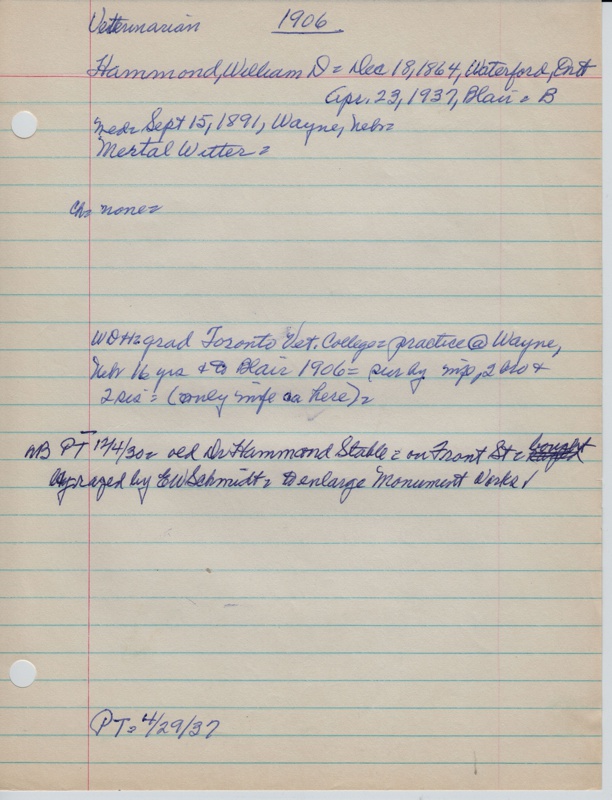 Veterinarian 1906
Hammond, William D = Dec 18, 1864, Waterford, Ont
Apr. 23, 1937, Blair = B
med= Sept 15, 1891, Wayne, Nebr=
Mertal Witter =
Ch= none=
WDH= grad Toronto Vet. College= practice @ Wayne,
Nebr 16 yrs & to Blair 1906= sur by wife, 2 bro &
2 sis = (only wife ca here)=
NB PT 12/4/30= oed Dr Hammond Stable = on Front St = bought
& razed by EW Schmidt= to enlarge Monument Works
PT= 4/29/37